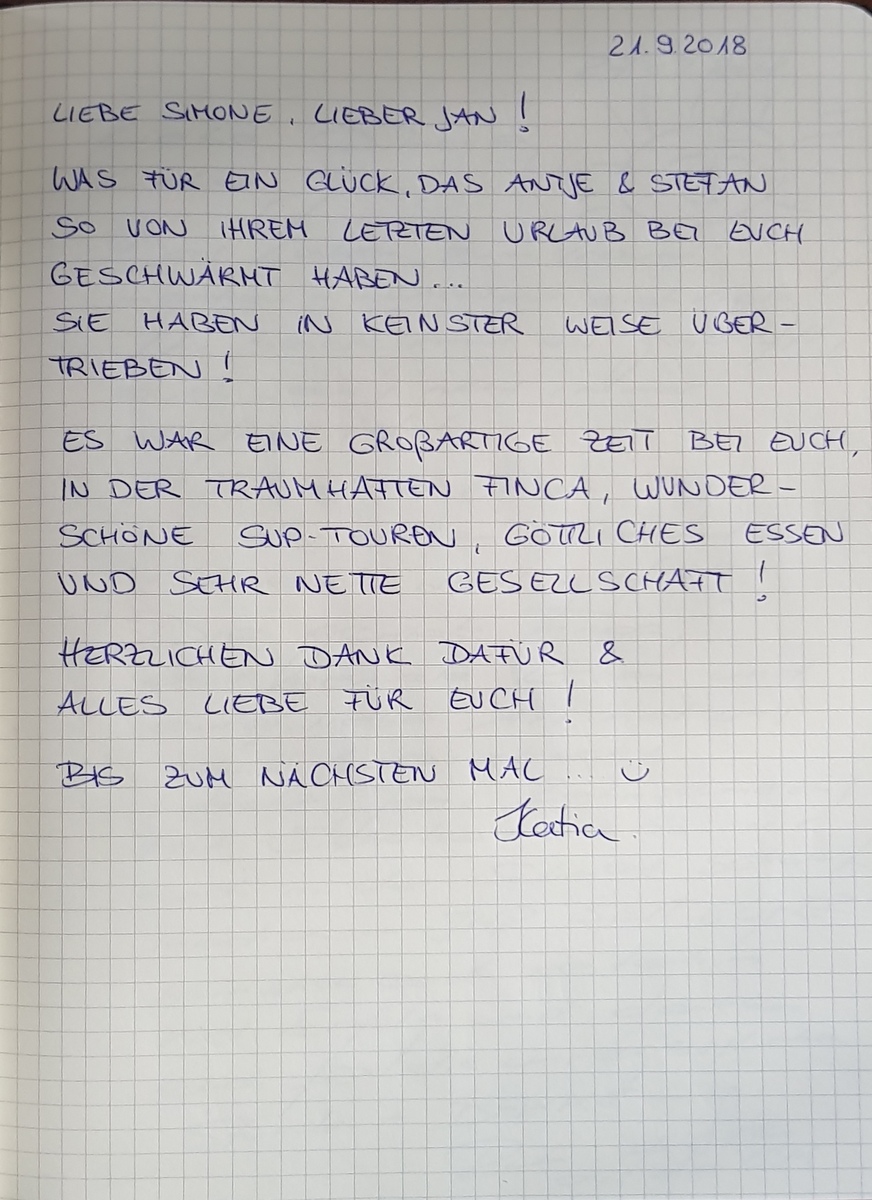 21.9.2018
LIEBE SIMONE, LIEBER JAN!
WAS FÜR EIN GLÜCK, DAS ANTJE & STEFAN
SO VON IHREM LETZTEN URLAUB BEI EUCH
GESCHWÄRMT HABEN...
SIE HABEN IN KEINSTER WEISE ÜBER-
TRIEBEN!
ES WAR EINE GROßARTIGE ZEIT BEI EUCH,
IN DER TRAUMHAFTEN FINCA, WUNDER-
SCHÖNE SUP-TOUREN, GÖTTLICHES ESSEN
UND SEHR NETTE GESELLSCHAFT!
HERZLICHEN DANK DAFÜR &
ALLES LIEBE FÜR EUCH!
BIS ZUM NÄCHSTEN MAL... ü
Katia